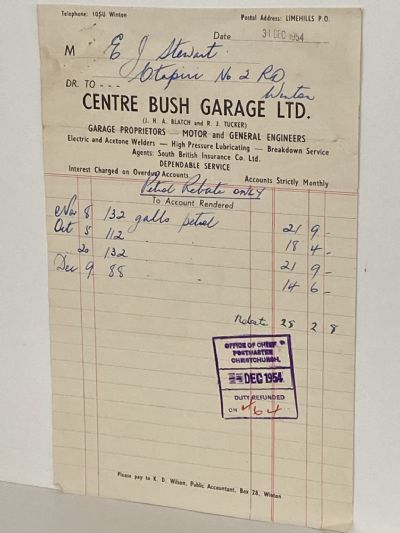 Telephone: 10SU Winton
Postal Address: LIMEHILLS P.O.
Date 31 DEC 1954
M E J Stewart.
Otapiri No 2 RD
Winton
DR. TO
CENTRE BUSH GARAGE LTD.
(J. H. A. BLATCH and R. J. TUCKER)
GARAGE PROPRIETORS — MOTOR and GENERAL ENGINEERS
Electric and Acetone Welders — High Pressure Lubricating — Breakdown Service
Agents: South British Insurance Co. Ltd.
DEPENDABLE SERVICE
Interest Charged on Overdue Accounts
Accounts Strictly Monthly
Petrol Rebate ONLY
To Account Rendered
Nov 8 132 galls petrol 21 9 -
Oct 5 112 18 4 -
20 132 21 9 -
Dec 9 88 14 6 -
Rebate 25 2 8
OFFICE OF CHIEF
POSTMASTER
CHRISTCHURCH.
DEC 1954
DUTY REFUNDED
ON 464
Please pay to K. D. Wilson, Public Accountant, Box 28, Winton